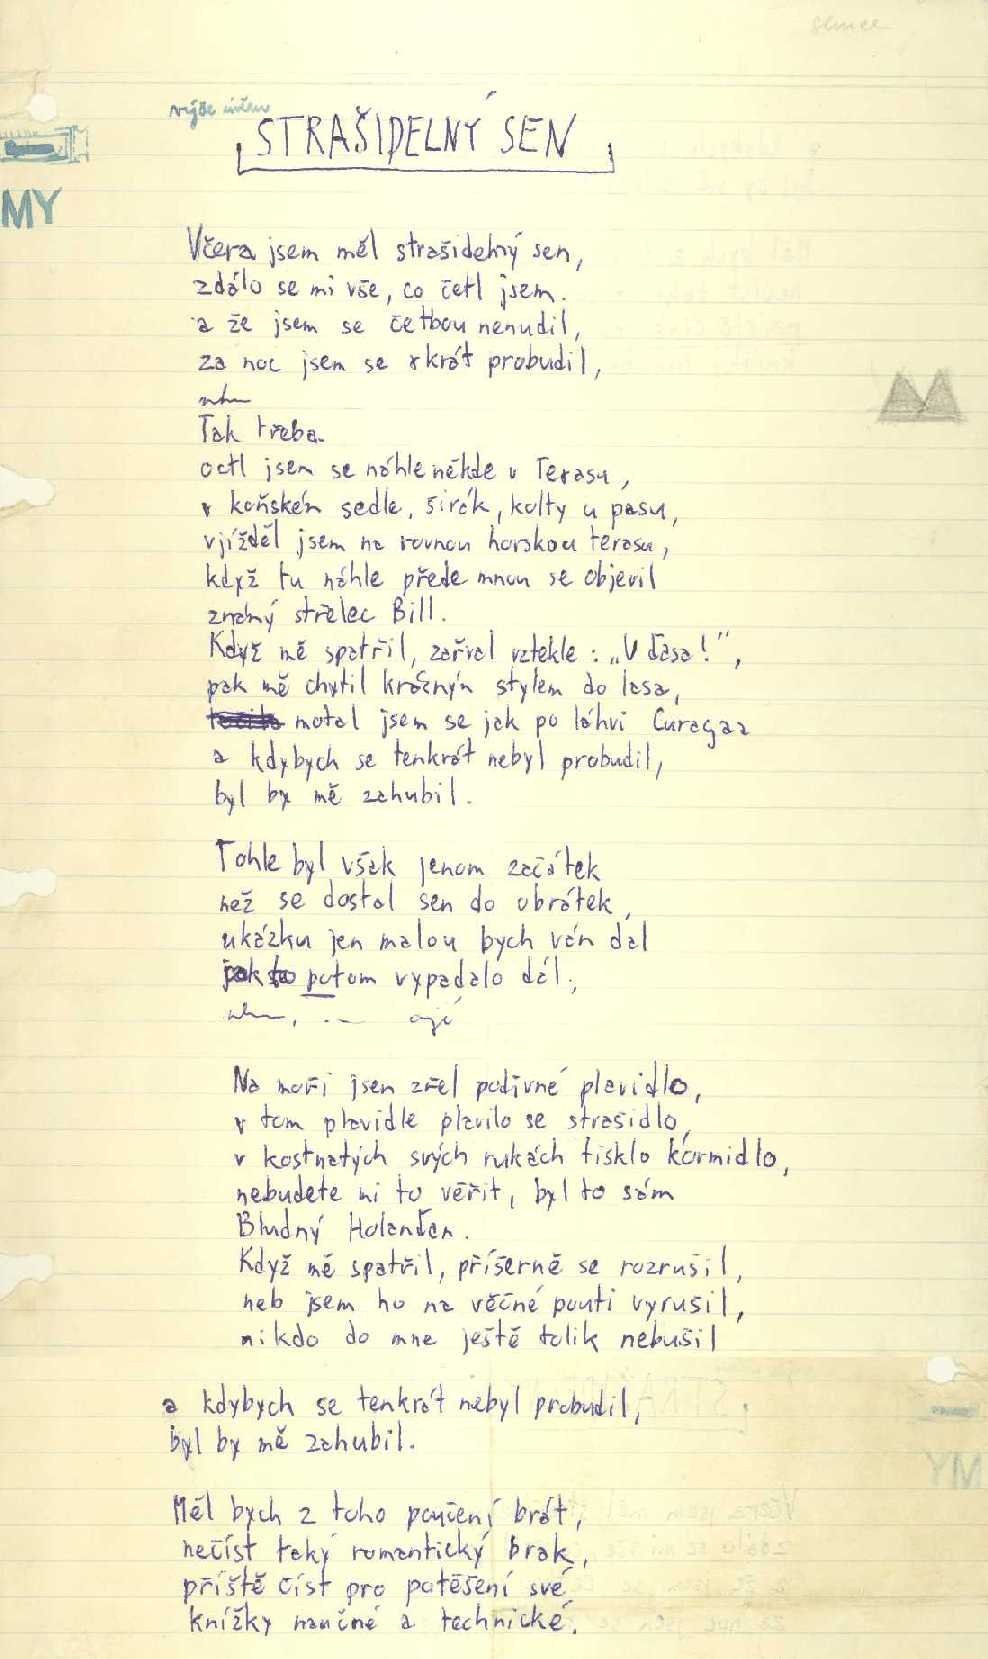 výše
STRAŠIDELNÝ SEN
MY
Včera jsem měl strašidelný sen,
zdálo se mi vše, co četl jsem.
a že jsem se četbou nenudil,
za noc jsem se xkrát probudil,
Tak třeba.
octl jsem se náhle někde v Texasu,
v koňském sedle, širák, kolty u pasu,
vjížděl jsem na rovnou horskou terasu,
když tu náhle přede mnou se objevil
známý střelec Bill.
Když mě spatřil, zařval vztekle: „U ďasa!",
pak mě chytil krásným stylem do lasa,
motal jsem se jak po láhvi Curaçaa
a kdybych se tenkrát nebyl probudil,
byl by mě zahubil.
Tohle byl však jenom začátek
než se dostal sen do obrátek,
ukázku jen malou bych vám dal
jak to potom vypadalo dál.,
ajé
Na moři jsem zřel podivné plavidlo,
v tom plavidle plavilo se strašidlo,
v kostnatých svých rukách tisklo kormidlo,
nebudete mi to věřit, byl to sám
Bludný Holanďan.
Když mě spatřil, příšerně se rozrušil,
neb jsem ho na věčné pouti vyrušil,
nikdo do mne ještě tolik nebušil
a kdybych se tenkrát nebyl probudil,
byl by mě zahubil.
Měl bych z toho poučení brát,
nečíst taky romantický brak,
příště číst pro potěšení své
knížky naučné a technické.